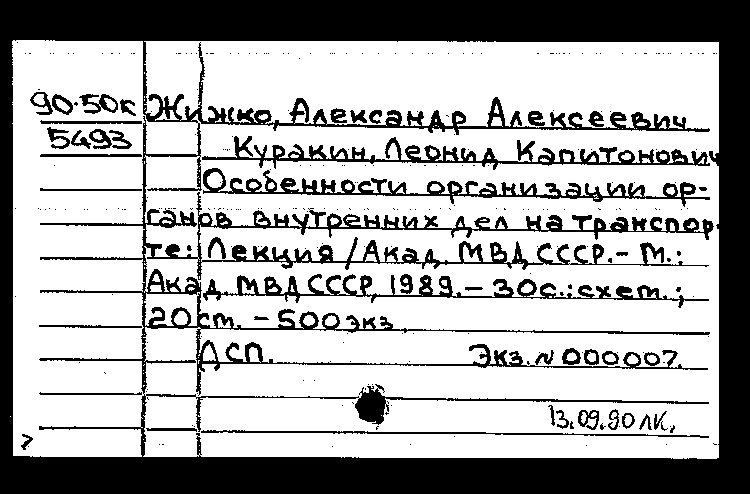 90-50к Жижко, Александр Алексеевич
5493 Куракин, Леонид Капитонович
Особенности организации ор-
ганов внутренних дел на транспор-
те: Лекция / Акад. МВД СССР. - М.:
Акад. МВД СССР, 1989. - 30с.: схем.;
20 см. - 500 экз.
ДСП. Экз. N 000007.
13.09.90 ЛК.
7